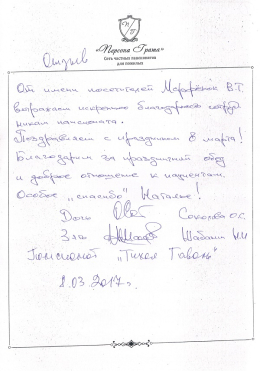 Отзыв
"Персона Грата"
Сеть частных пансионатов
для пожилых
От имени посетителей В.Т.
выражаем искреннюю благодарность сотруд-
никам пансионата.
Поздравляем с праздником 8 марта!
Благодарим за праздничный обед
и доброе отношение к пациентам.
Особое "спасибо" Наталье!
Дочь Соколова О.С.
Зять Шабанин
Пансионат "Тихая Гавань"
8.03.2017г.